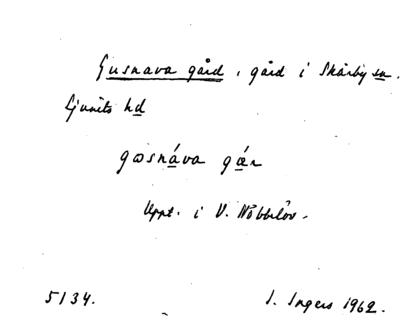 Gusnava gård, gård i Skårby sn.
Ljunits hd
gosnáva gǽr
Uppt. i V. Nöbbelöv.
5134.
I. Ingers 1962.